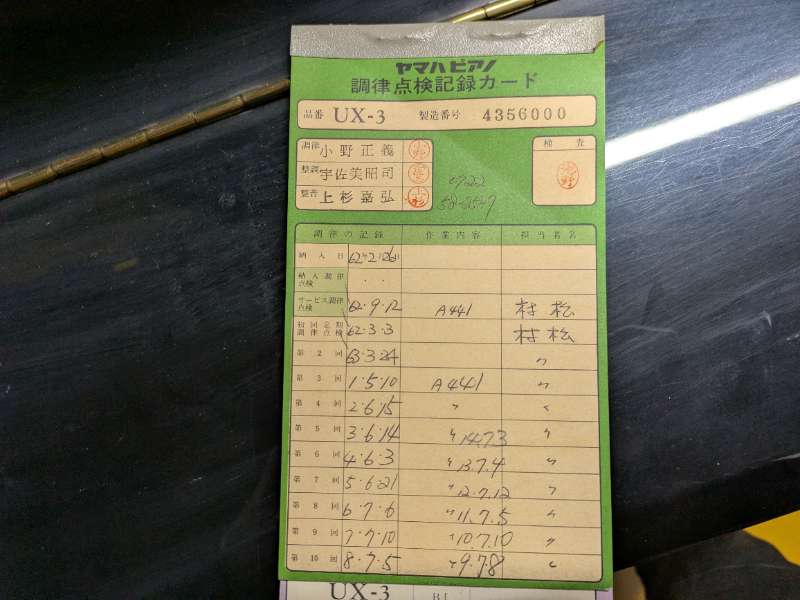 ヤマハピアノ
調律点検記録カード
品番 UX-3 製造番号 4356000
調律 小野正義 検査
整調 宇佐美昭司
整音 上杉嘉弘
調律の記録 作業内容 担当者名
納入日 62 2 26
納入調律点検 . .
サービス調律点検 62.9.12 A441 村松
初回定期調律点検 62.3.3 村松
第2回 63.3.24 〃
第3回 1.5.10 A441 〃
第4回 2.6.15 〃 〃
第5回 3.6.14 〃 14.7.3 〃
第6回 4.6.3 〃 13.7.4 〃
第7回 5.6.21 〃 12.7.12 〃
第8回 6.7.6 〃 11.7.5 〃
第9回 7.7.10 〃 10.7.10 〃
第10回 8.7.5 〃 9.7.8 〃
UX-3